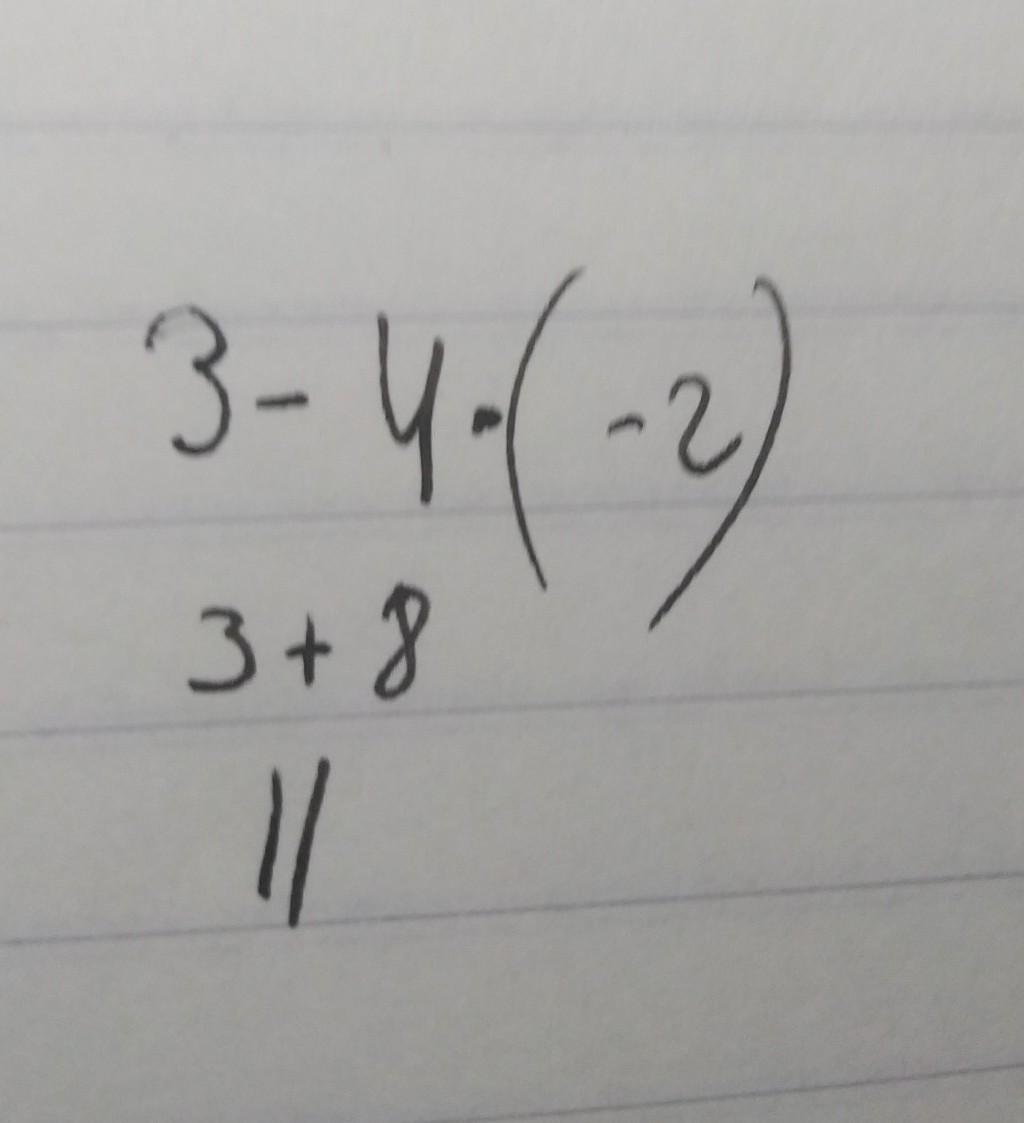 3 - 4 · (-2)
3 + 8
11